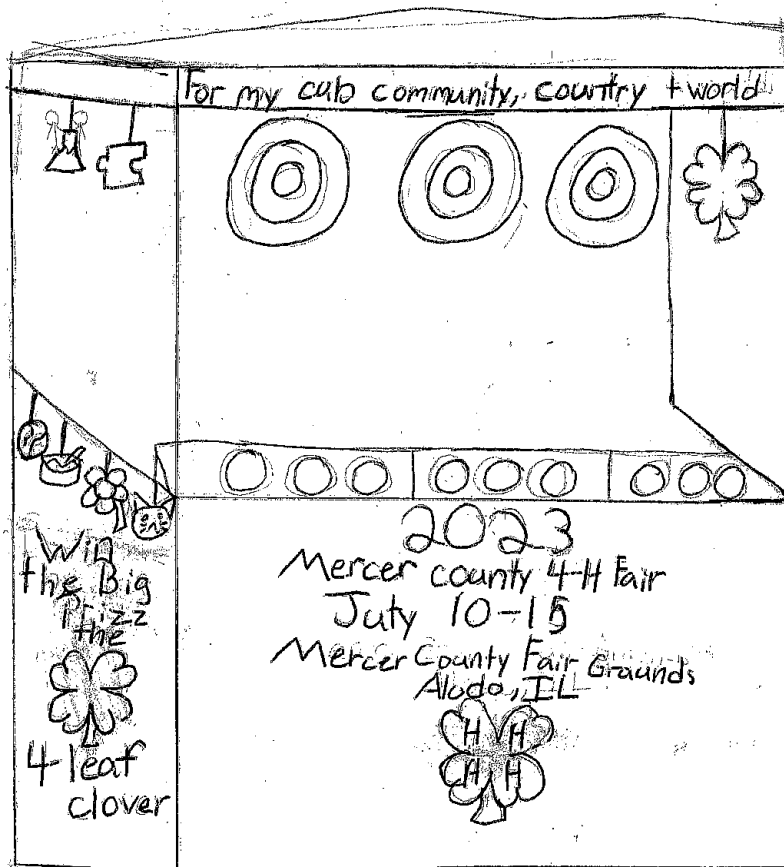 For my cub community, country + world
Win
the Big
Prizz
the
4-leaf
clover
2023
Mercer county 4-H Fair
Juty 10-15
Mercer County Fair Graunds
Alodo, IL
H H
H H